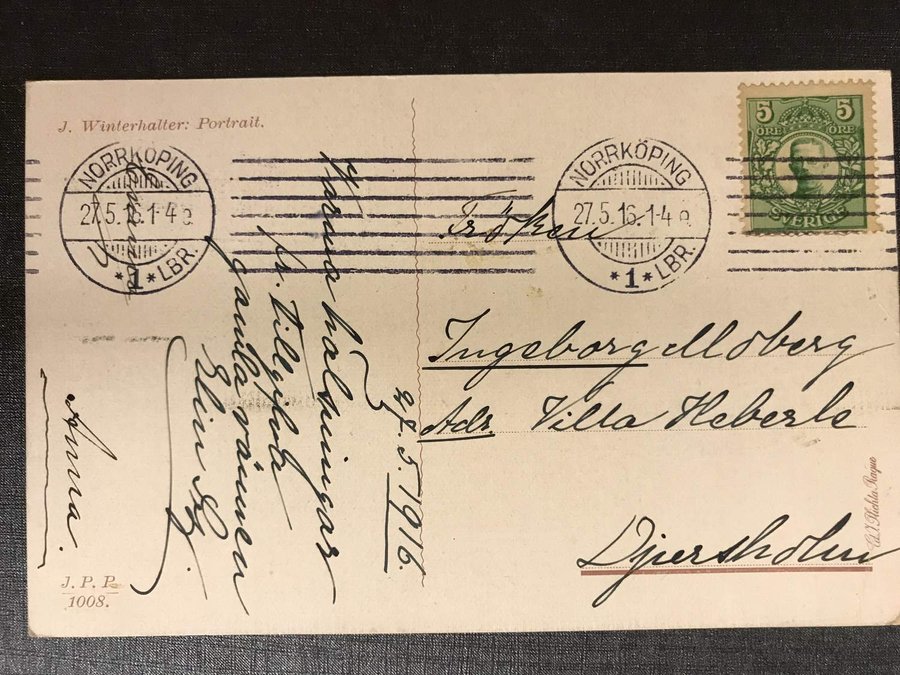 J. Winterhalter: Portrait.
NORRKÖPING
27.5.16.1-4 e
*1* LBR.
NORRKÖPING
27.5.16.1-4 e
*1* LBR.
5 5
ÖRE ÖRE
SVERIGE
27.5.1916.
Varma hälsningar
fr. tillgifna
gamla vännen
Elin
Anna.
Fröken
Ingeborg Moberg
Adr. Villa Heberle
Djursholm
J. P. P.
1008.